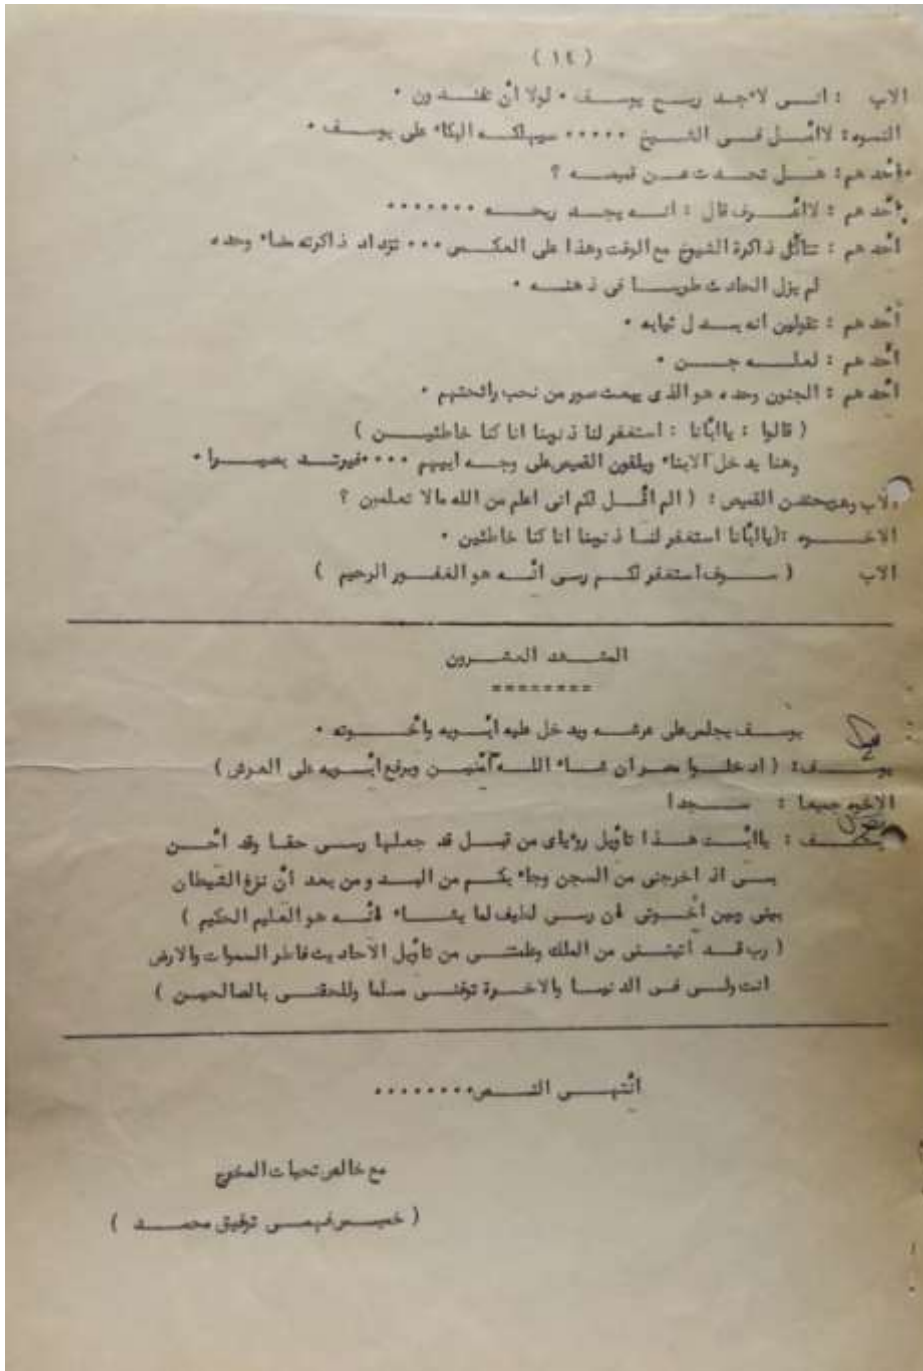 ( ١٤ )
الاب : انى لاجد ريح يوسف ٠ لولا أن تفندون ٠
النسوه: لاأمل فى الشيخ ٠٠٠٠٠ سيهلكه البكاء على يوسف ٠
أحدهم: هل تحدث عن قميصه ؟
أحدهم : لاأعرف قال : انه يجد ريحه ٠٠٠٠٠٠٠
أحدهم : تتآكل ذاكرة الشيوخ مع الوقت وهذا على العكس ٠٠٠ تزداد ذاكرته وحده
لم يزل الحادث فى ذهنه ٠
أحدهم : تقولين انه يبدل ثيابه ٠
أحدهم : لعله جن ٠
أحدهم : الجنون وحده هو الذى يبعث صور من نحب رائحتهم ٠
( قالوا : ياأبانا : استغفر لنا ذنوبنا انا كنا خاطئين )
وهنا يدخل الابناء ويلقون القميص على وجه ابيهم ٠٠٠٠ فيرتد بصيرا ٠
الاب وهو يحتضن القميص : ( الم اقل لكم انى اعلم من الله مالا تعلمين ؟
الاخوه :(ياأبانا استغفر لنا ذنوبنا انا كنا خاطئين ٠
الاب ( سوف استغفر لكم ربى انه هو الغفور الرحيم )
المشهد العشرون
========
يوسف يجلس على عرشه ويدخل عليه أبويه وأخوته ٠
يوسف: ( ادخلوا مصر ان شاء الله آمنين ويرفع أبويه على العرش )
الاخوه جميعا : سجدا
يوسف : ياأبت هذا تأويل رؤياى من قبل قد جعلها ربى حقا وقد أحسن
بى اذ اخرجنى من السجن وجاء بكم من البدو من بعد أن نزغ الشيطان
بينى وبين أخوتى ان ربى لطيف لما يشاء انه هو العليم الحكيم )
( رب قد آتيتنى من الملك وعلمتنى من تأويل الأحاديث فاطر السموات والارض
انت ولى فى الدنيا والاخرة توفنى مسلما وللحقنى بالصالحين )
أنتهى النص٠٠٠٠٠٠٠٠
مع خالص تحيات المخرج
( خميس فهمى توفيق محمد )